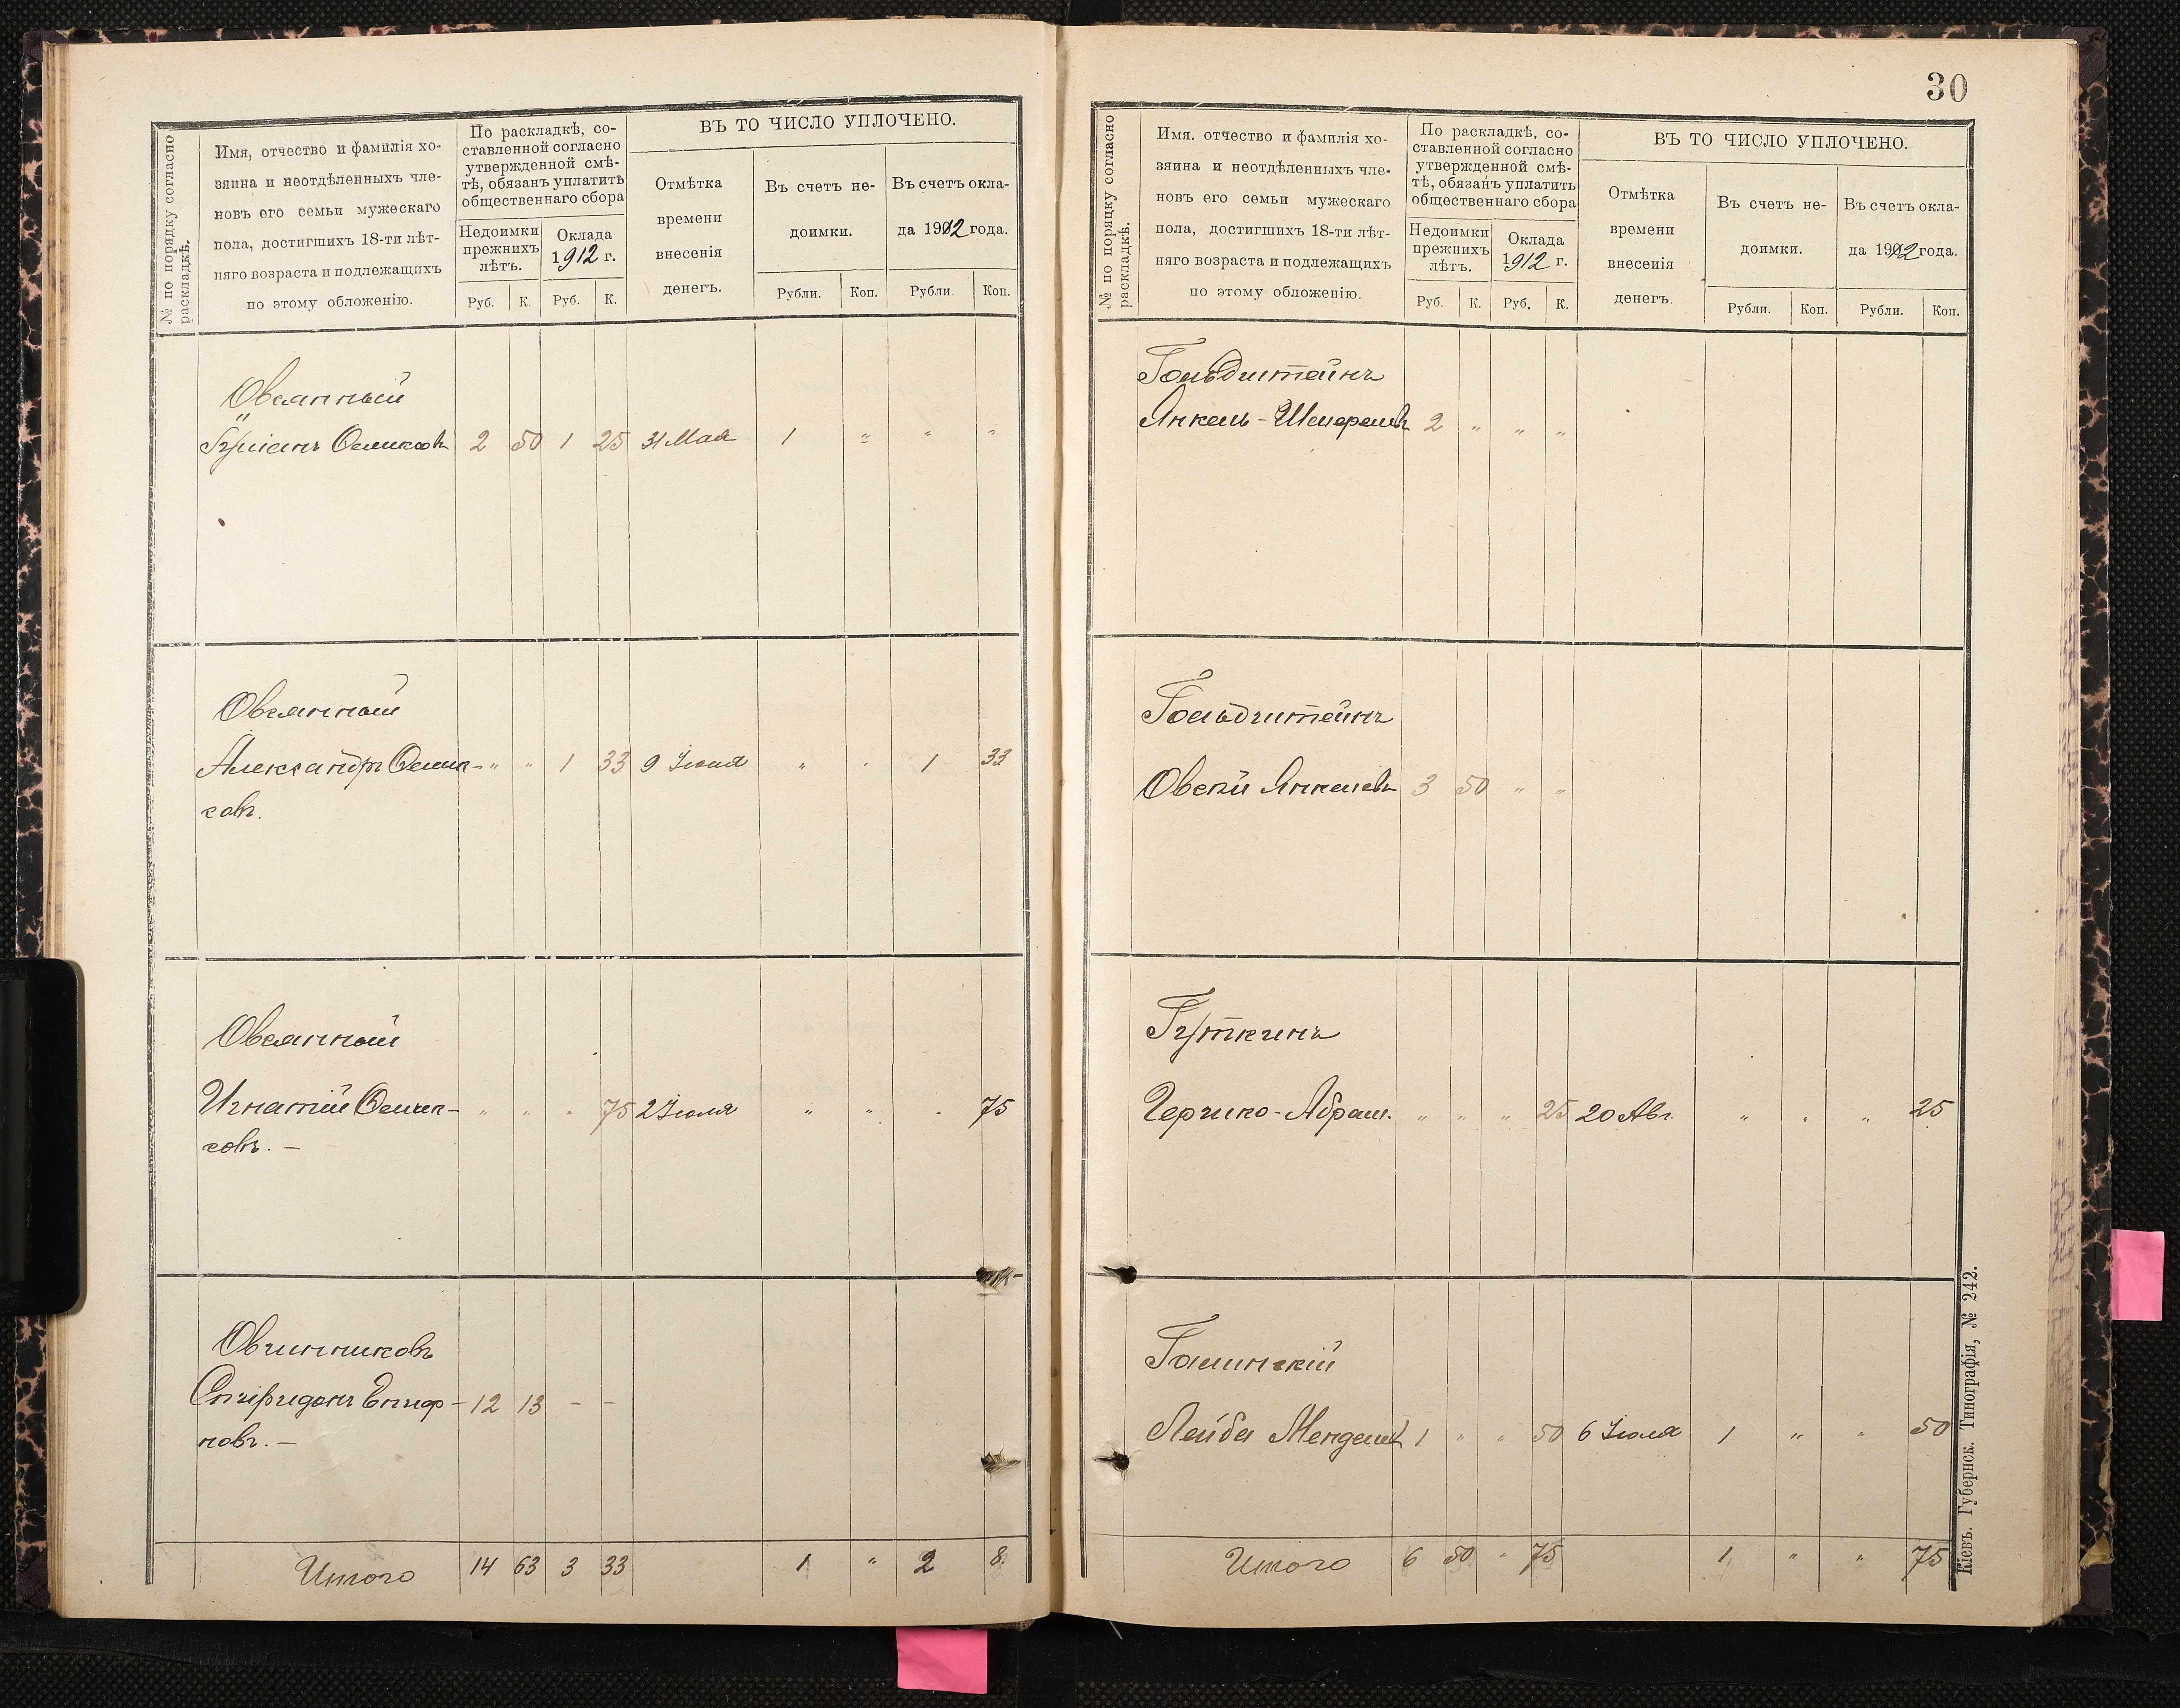 № по порядку согласно
раскладкѣ.
Имя, отчество и фамилія хо-
зяина и неотдѣленныхъ чле-
новъ его семьи мужескаго
пола, достигшихъ 18-ти лѣт-
няго возраста и подлежащихъ
по этому обложенію.
По раскладкѣ, со-
ставленной согласно
утвержденной смѣ-
тѣ, обязанъ уплатить
общественнаго сбора
Недоимки
прежнихъ
лѣтъ.
Оклада
1912 г.
Руб. К. Руб. К.
ВЪ ТО ЧИСЛО УПЛОЧЕНО.
Отмѣтка
времени
внесенія
денегъ.
Въ счетъ не-
доимки.
Въ счетъ окла-
да 1912 года.
Рубли. Коп. Рубли. Коп.
Овсянный
2 50 1 25 31 Мая 1 " " "
Овсянный
Александръ " " 1 33 9 Іюня " " 1 33
Овсянный
Игнатій " " " 75 2 Іюля " " " 75
совъ. —
Овчинниковъ
Спиридонъ 12 13 - -
новъ. —
Итого 14 63 3 33 1 " 2 8.
30
№ по порядку согласно
раскладкѣ.
Имя, отчество и фамилія хо-
зяина и неотдѣленныхъ чле-
новъ его семьи мужескаго
пола, достигшихъ 18-ти лѣт-
няго возраста и подлежащихъ
по этому обложенію.
По раскладкѣ, со-
ставленной согласно
утвержденной смѣ-
тѣ, обязанъ уплатить
общественнаго сбора
Недоимки
прежнихъ
лѣтъ.
Оклада
1912 г.
Руб. К. Руб. К.
ВЪ ТО ЧИСЛО УПЛОЧЕНО.
Отмѣтка
времени
внесенія
денегъ.
Въ счетъ не-
доимки.
Въ счетъ окла-
да 1912 года.
Рубли. Коп. Рубли. Коп.
Гольдштейнъ
Янкель- 2 " " "
Гольдштейнъ
Овсѣй Янкелевъ 3 50 " "
Гуткинъ
Гершко-Абрам. " " " 25 20 Авг. " " " 25
Галинскій
Лейба Мендел 1 " " 50 6 Іюля 1 " " 50
Итого 6 50 " 75 1 " " 75
Кіевъ. Губернск. Типографія, № 242.